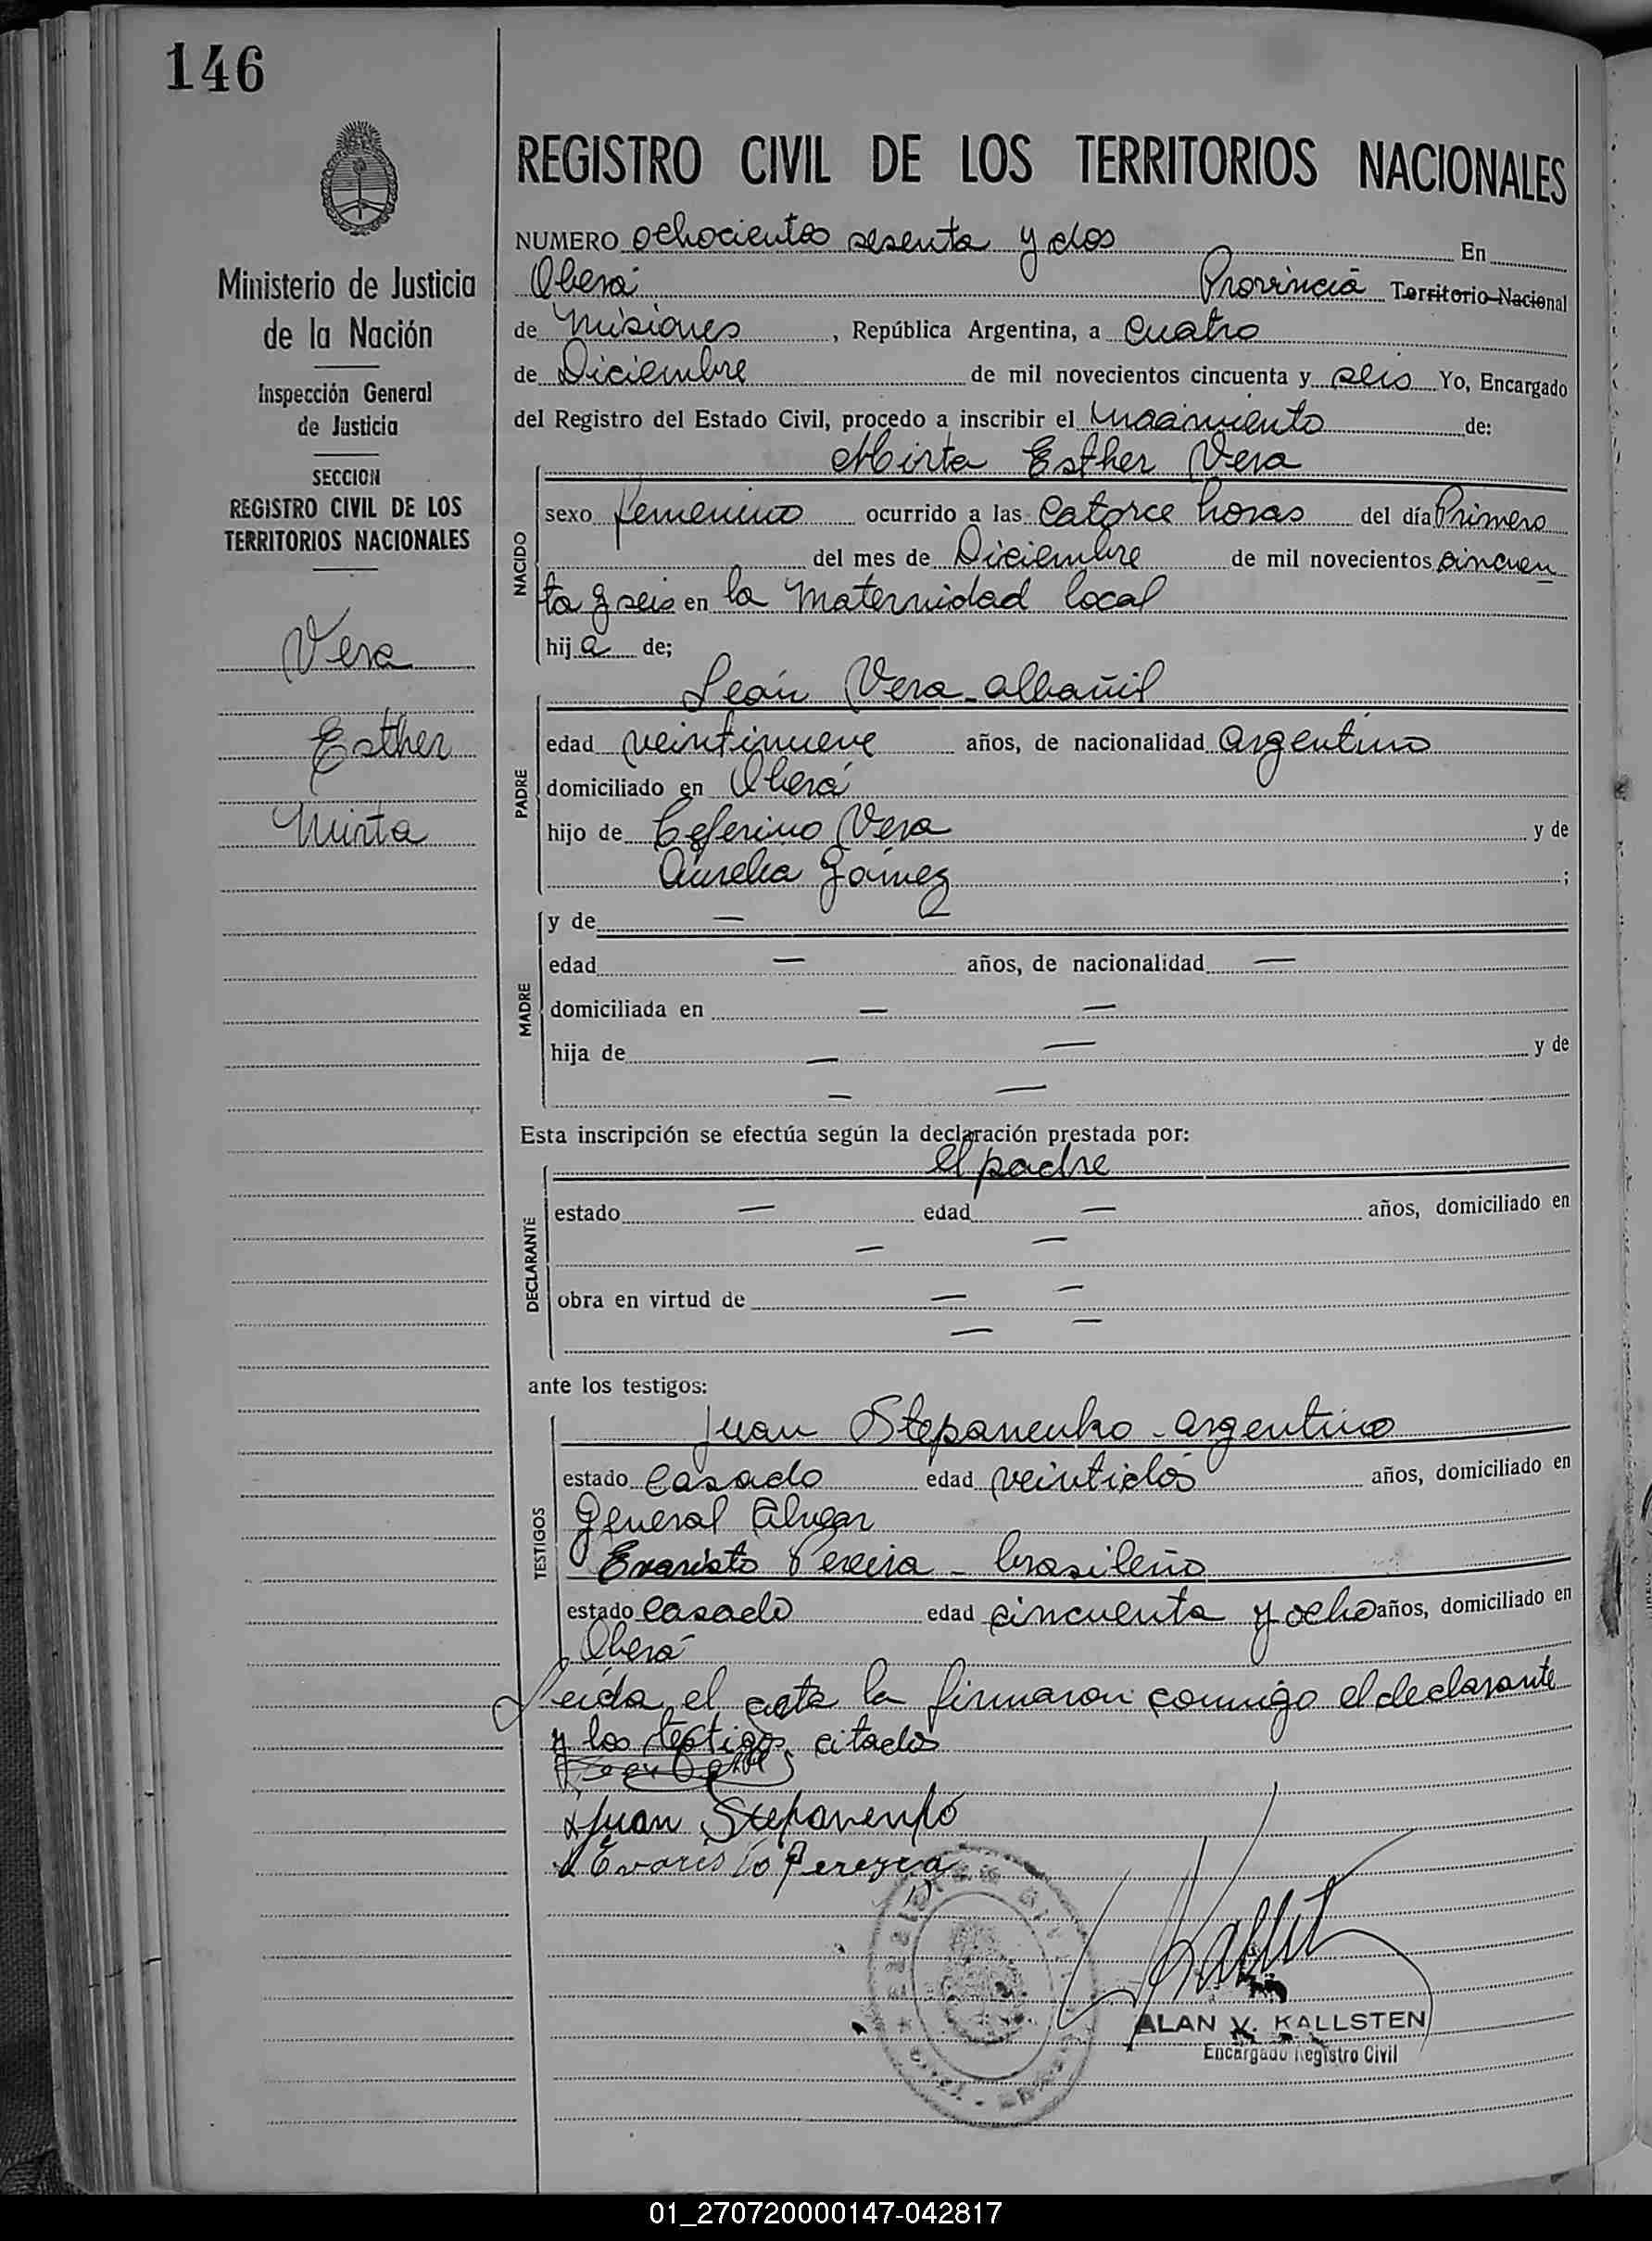 146
REGISTRO CIVIL DE LOS TERRITORIOS NACIONALES
Ministerio de Justicia
de la Nación
Inspección General
de Justicia
SECCION
REGISTRO CIVIL DE LOS
TERRITORIOS NACIONALES
Vera
Esther
Mirta
NUMERO ochocientos sesenta y dos En
Oberá Provincia Territorio Nacional
de Misiones, República Argentina, a Cuatro
de Diciembre de mil novecientos cincuenta y seis Yo, Encargado
del Registro del Estado Civil, procedo a inscribir el nacimiento de:
Mirta Esther Vera
NACIDO
sexo femenino ocurrido a las catorce horas del día Primero
del mes de Diciembre de mil novecientos cincuen
ta y seis en la Maternidad local
hija de;
León Vera - albañil
PADRE
edad veintinueve años, de nacionalidad argentino
domiciliado en Oberá
hijo de Ceferino Vera y de
Aurelia Gómez ;
MADRE
y de —
edad — años, de nacionalidad —
domiciliada en — —
hija de — — y de
— —
Esta inscripción se efectúa según la declaración prestada por:
el padre
DECLARANTE
estado — edad — años, domiciliado en
— —
obra en virtud de — —
— —
ante los testigos:
Juan Stepanenko - argentino
TESTIGOS
estado casado edad veintidós años, domiciliado en
General Alvear
Evaristo Pereira - brasileño
estado casado edad cincuenta y ocho años, domiciliado en
Oberá
Leída el acta la firmaron conmigo el declarante
y los testigos citados
Juan Stepanenko
Evaristo Pereyra
ALAN V. KALLSTEN
Encargado Registro Civil
01_270720000147-042817